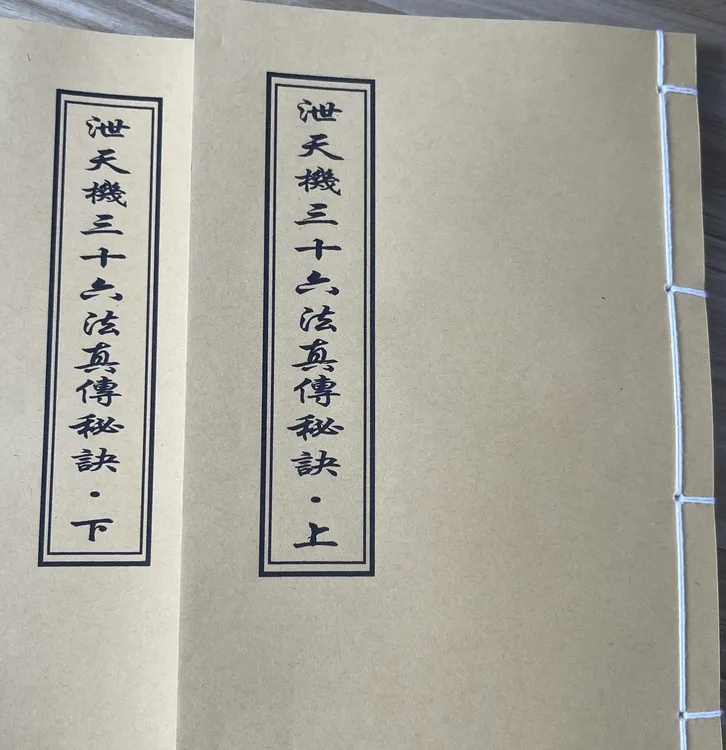 泄天機三十六法真傳秘訣·上
泄天機三十六法真傳秘訣·下